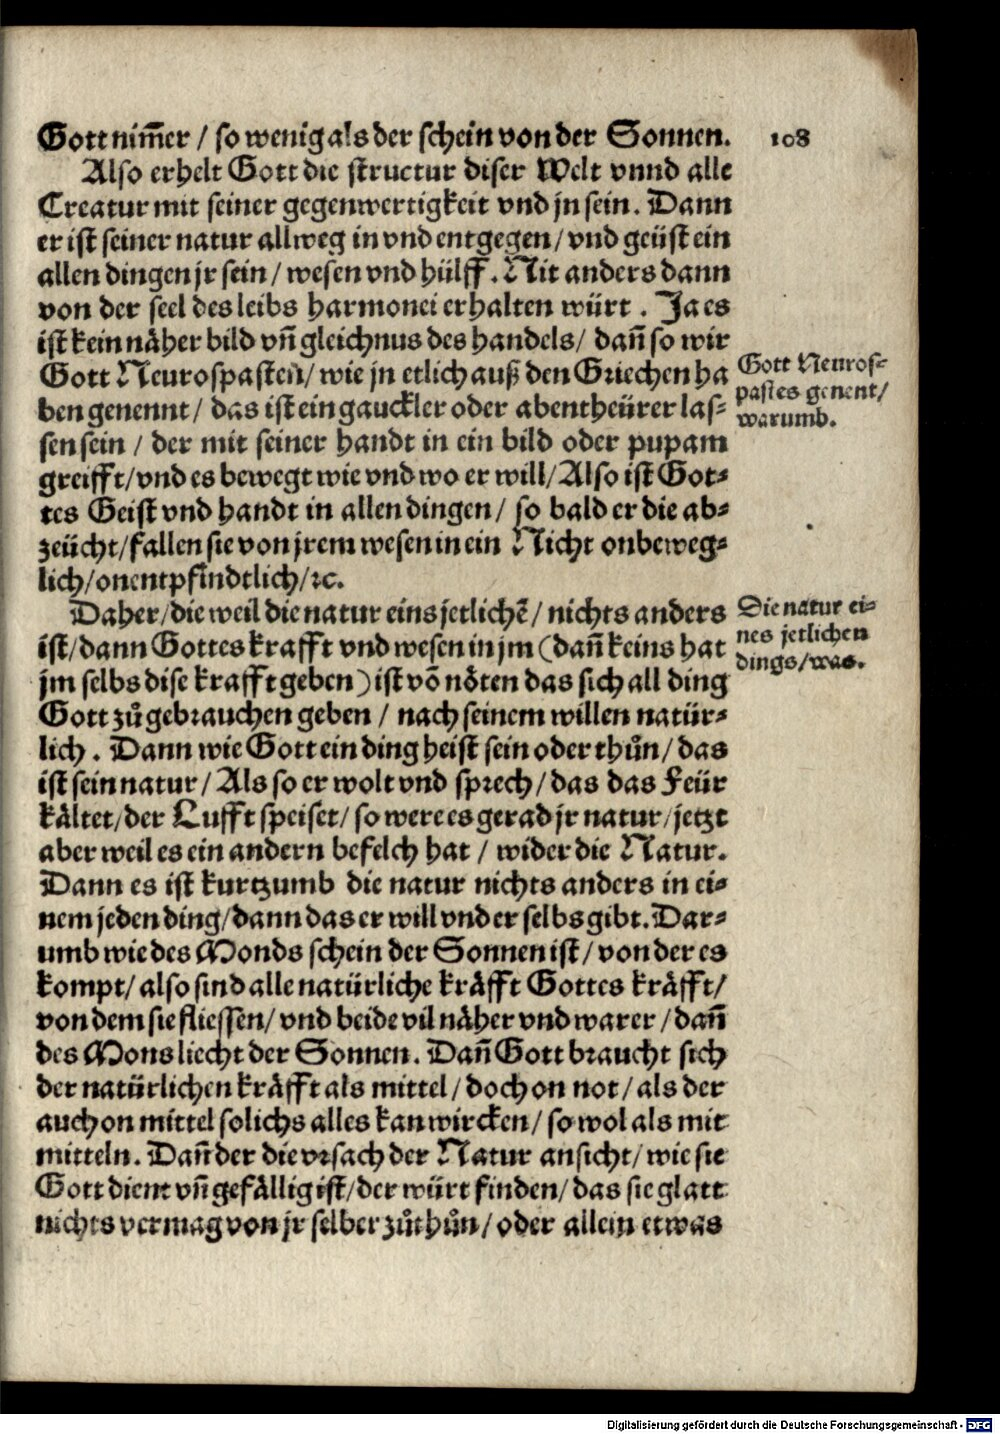 Gott nim̃er / so wenig als der schein von der Sonnen.
108
Also erhelt Gott die structur diser Welt vnnd alle
Creatur mit seiner gegenwertigkeit vnd jn sein. Dann
er ist seiner natur allweg in vnd entgegen / vnd geüst ein
allen dingen jr sein / wesen vnd hülff. Nit anders dann
von der seel des leibs harmonei erhalten würt. Ja es
ist kein näher bild vñ gleichnus des handels / dañ so wir
Gott Neurospasten / wie jn etlich auß den Griechen ha
ben genennt / das ist ein gauckler oder abentheürer las⸗
sen sein / der mit seiner handt in ein bild oder pupam
greifft / vnd es bewegt wie vnd wo er will / Also ist Got⸗
tes Geist vnd handt in allen dingen / so bald er die ab⸗
zeücht / fallen sie von jrem wesen in ein Nicht onbeweg⸗
lich / onentpfindtlich / ꝛc.
Gott Neuros⸗
pastes genent /
warumb.
Daher / die weil die natur eins jetlichẽ / nichts anders
ist / dann Gottes krafft vnd wesen in jm (dañ keins hat
jm selbs dise krafft geben) ist võ nöten das sich all ding
Gott zů gebrauchen geben / nach seinem willen natür⸗
lich. Dann wie Gott ein ding heist sein oder thůn / das
ist sein natur / Als so er wolt vnd sprech / das das Feür
kältet / der Lufft speiset / so were es gerad jr natur / jetzt
aber weil es ein andern befelch hat / wider die Natur.
Dann es ist kurtzumb die natur nichts anders in ei⸗
nem jeden ding / dann das er will vnd er selbs gibt. Dar⸗
umb wie des Monds schein der Sonnen ist / von der es
kompt / also sind alle natürliche kräfft Gottes kräfft /
von dem sie fliessen / vnd beide vil näher vnd warer / dañ
des Mons liecht der Sonnen. Dañ Gott braucht sich
der natürlichen kräfft als mittel / doch on not / als der
auch on mittel solichs alles kan wircken / so wol als mit
mitteln. Dañ der die vrsach der Natur ansicht / wie sie
Gott dient vñ gefällig ist / der würt finden / das sie glatt
nichts vermag von jr selber zů thůn / oder allein etwas
Die natur ei⸗
nes jetlichen
dings / was.
Digitalisierung gefördert durch die Deutsche Forschungsgemeinschaft - DFG